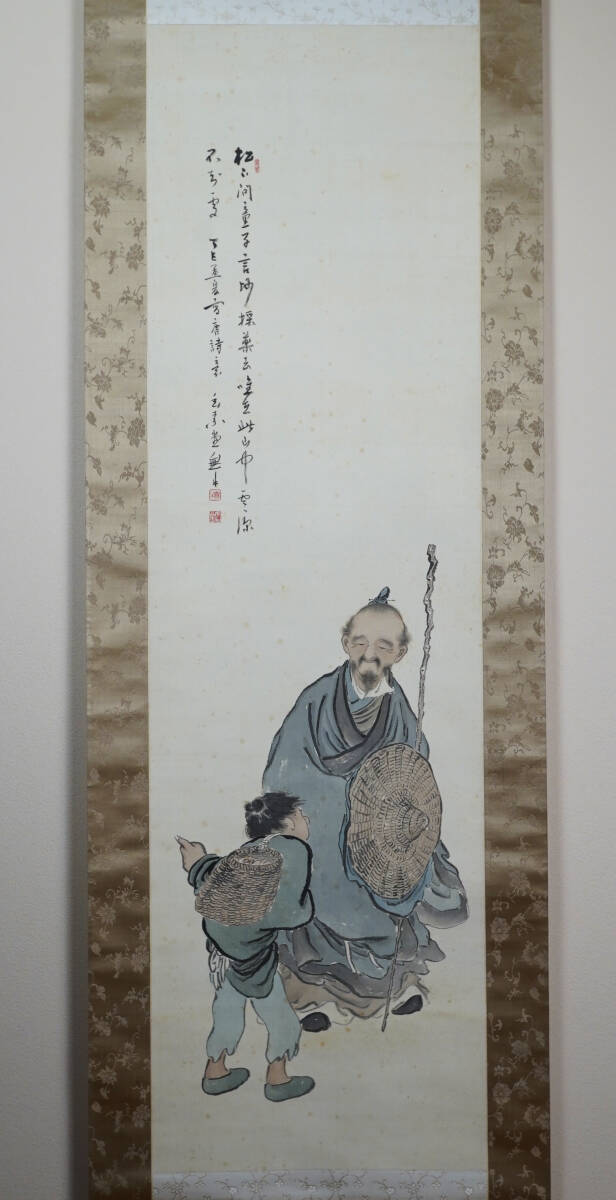 松下問童子言師採藥去唯在此山中雲深
不知處 丁巳孟夏寫唐詩意